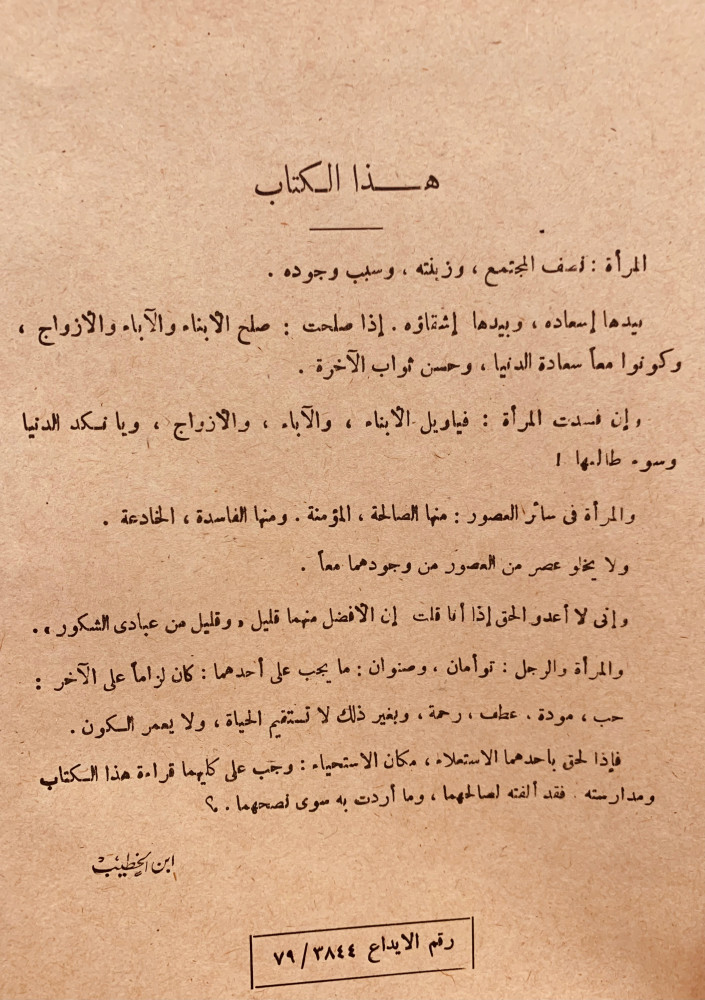 هـــذا الكتاب
المرأة : نصف المجتمع ، وزينته ، وسبب وجوده .
بيدها إسعاده ، وبيدها إشقاؤه . إذا صلحت : صلح الأبناء والآباء والأزواج ،
وكونوا معاً سعادة الدنيا ، وحسن ثواب الآخرة .
وإن فسدت المرأة : فياويل الأبناء ، والآباء ، والأزواج ، ويا نكد الدنيا
وسوء طالعها !
والمرأة فى سائر العصور : منها الصالحة ، المؤمنة . ومنها الفاسدة ، الخادعة .
ولا يخلو عصر من العصور من وجودهما معاً .
وإنى لا أعدو الحق إذا أنا قلت إن الأفضل منهما قليل « وقليل من عبادى الشكور » .
والمرأة والرجل : توأمان ، وصنوان : ما يجب على أحدهما : كان لزاماً على الآخر :
حب ، مودة ، عطف ، رحمة ، وبغير ذلك لا تستقيم الحياة ، ولا يعمر الكون .
فإذا لحق بأحدهما الاستعلاء ، مكان الاستحياء : وجب على كليهما قراءة هذا الكتاب
ومدارسته . فقد ألفته لصالحهما ، وما أردت به سوى نصحهما . ؟
ابن الخطيب
رقم الايداع ٣٨٤٤ / ٧٩